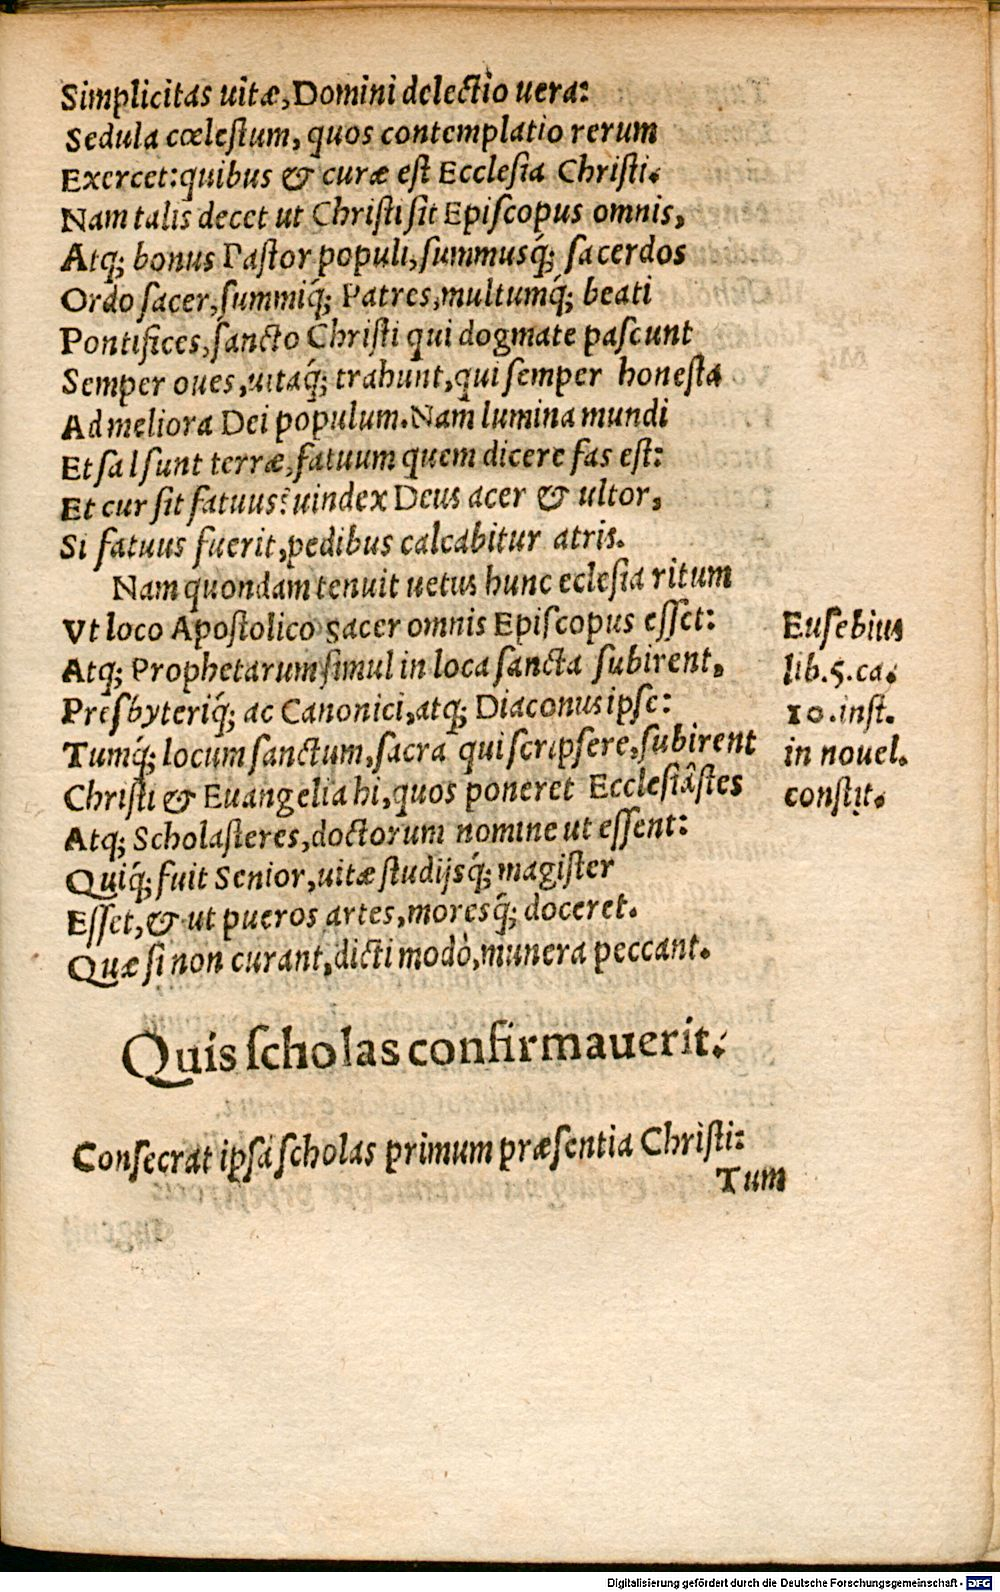 Simplicitas uitæ, Domini delectio uera:
Sedula cœlestum, quos contemplatio rerum
Exercet: quibus & curæ est Ecclesia Christi.
Nam talis decet ut Christi sit Episcopus omnis,
Atq; bonus Pastor populi, summusq́; sacerdos
Ordo sacer, summiq́; Patres, multumq́; beati
Pontifices, sancto Christi qui dogmate pascunt
Semper oues, uitaq́; trahunt, qui semper honesta
Ad meliora Dei populum. Nam lumina mundi
Et sal sunt terræ, fatuum quem dicere fas est:
Et cur sit fatuus? uindex Deus acer & ultor,
Si fatuus fuerit, pedibus calcabitur atris.
Nam quondam tenuit uetus hunc eclesia ritum
Vt loco Apostolico sacer omnis Episcopus esset:
Atq; Prophetarum simul in loca sancta subirent,
Presbyteriq́; ac Canonici, atq; Diaconus ipse:
Tumq́; locum sanctum, sacra qui scripsere, subirent
Christi & Euangelia hi, quos poneret Ecclesiâstes
Atq; Scholasteres, doctorum nomine ut essent:
Quiq́; fuit Senior, uitæ studijsq́; magister
Esset, & ut pueros artes, moresq́; doceret.
Quæ si non curant, dicti modò, munera peccant.
Eusebius
lib. 5. ca.
10. inst.
in nouel.
constit.
Quis scholas confirmauerit.
Consecrat ipsa scholas primum præsentia Christi:
Tum
Digitalisierung gefördert durch die Deutsche Forschungsgemeinschaft - DFG